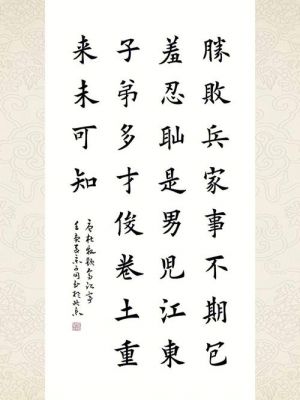 勝敗兵家事不期包
羞忍恥是男児江東
子弟多才俊卷土重
来未可知
唐杜牧题乌江亭